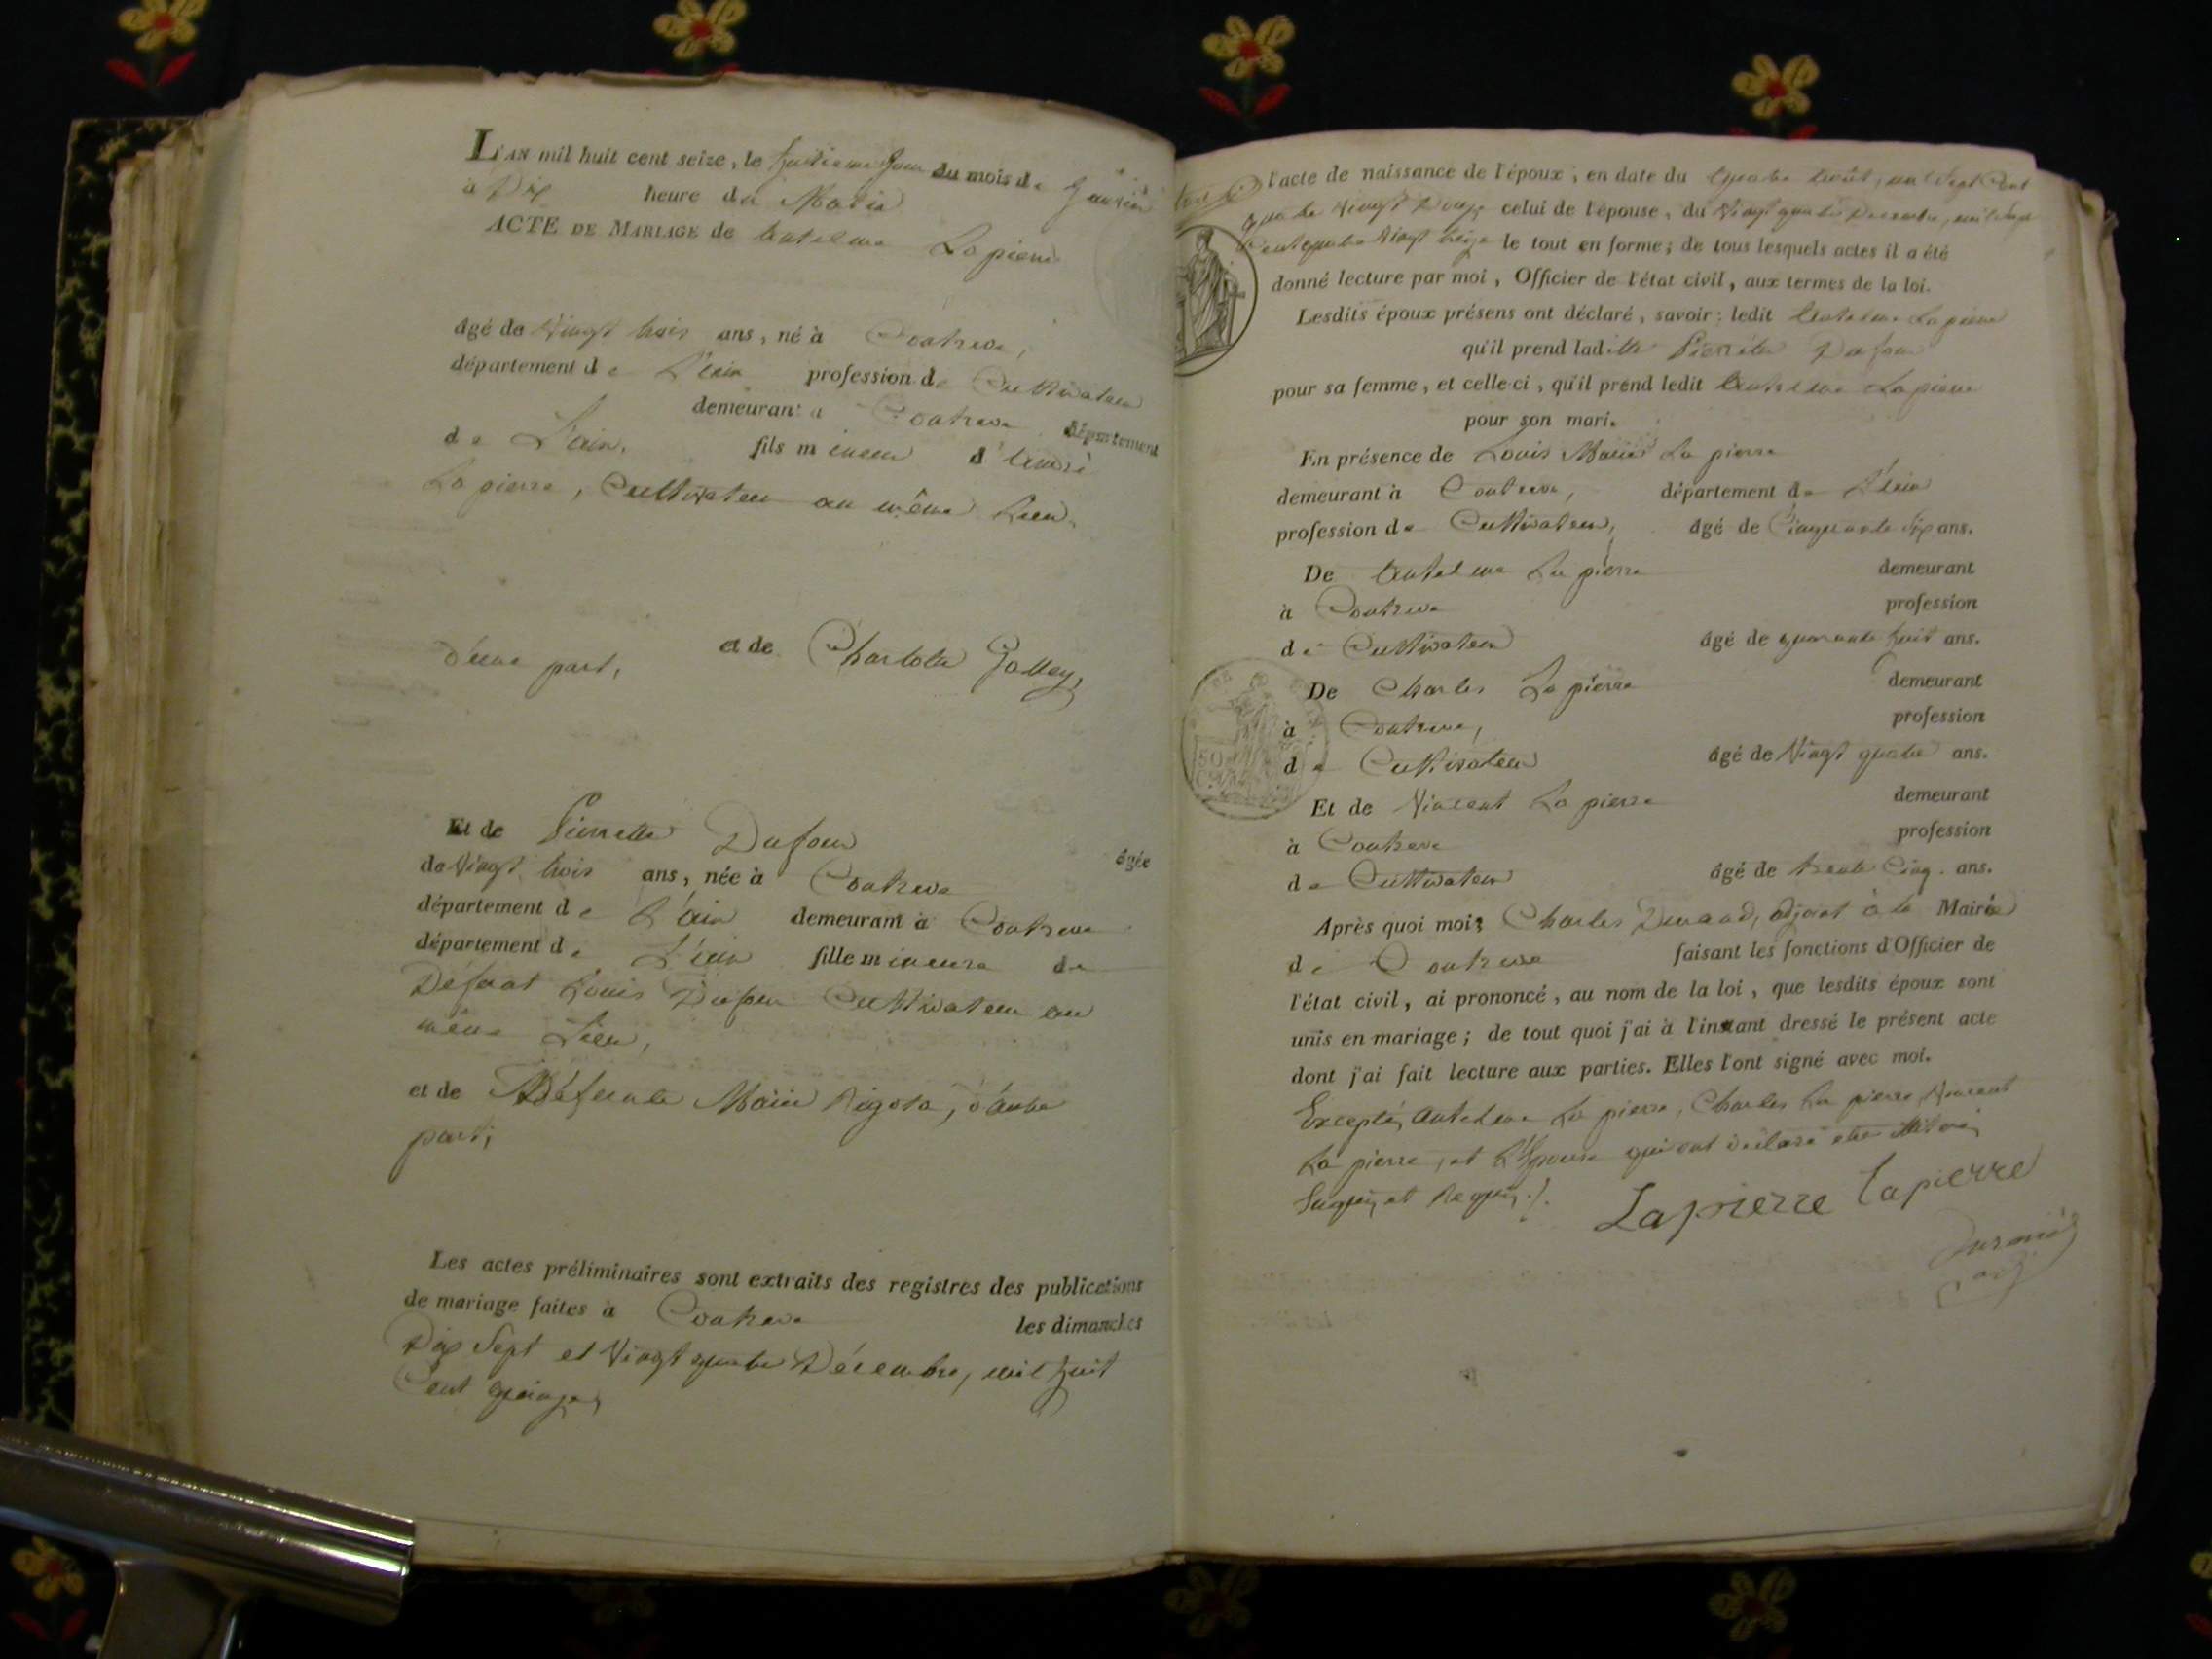 L'AN mil huit cent seize, le huitieme Jour du mois de Janvier
à Dix heure du Matin
ACTE DE MARIAGE de Antelme Lapierre
âgé de Vingt trois ans, né à Contrevo,
département de L'ain profession de Cultivateur
demeurant à Contrevo département
de L'ain, fils mineur d'andré
La pierre, Cultivateur au même Lieu,
d'une part, et de Charlote Golley,
Et de Pierrette Dufour âgée
de Vingt trois ans, née à Contrevo
département de L'ain demeurant à Contrevo
département de L'ain fille mineure de
Défunt Louis Dufour Cultivateur au
même Lieu,
et de Défunte Marie Rigota, d'autre
part,
Les actes préliminaires sont extraits des registres des publications
de mariage faites à Contrevo les dimanches
Dix Sept et Vingt quatre Décembre, mil huit
Cent quinze,
l'acte de naissance de l'époux, en date du Quatre août, mil Sept Cent
quatre Vingt Douze celui de l'épouse, du Vingt quatre Decembre, mil Sept
Cent quatre Vingt treize le tout en forme; de tous lesquels actes il a été
donné lecture par moi, Officier de l'état civil, aux termes de la loi.
Lesdits époux présens ont déclaré, savoir: ledit Antelme La pierre
qu'il prend laditte Pierrette Dufour
pour sa femme, et celle-ci, qu'il prend ledit Antelme La pierre
pour son mari.
En présence de Louis Marie La pierre
demeurant à Contrevo, département de L'ain
profession de Cultivateur, âgé de Cinquante Six ans.
De Antelme La pierre demeurant
à Contrevo profession
de Cultivateur âgé de quarante huit ans.
De Charles La pierre demeurant
à Contrevo, profession
de Cultivateur âgé de Vingt quatre ans.
Et de Vincent La pierre demeurant
à Contrevo profession
de Cultivateur âgé de trente Cinq ans.
Après quoi moi, Charles Durand, adjoint à la Mairie
de Contrevo faisant les fonctions d'Officier de
l'état civil, ai prononcé, au nom de la loi, que lesdits époux sont
unis en mariage; de tout quoi j'ai à l'instant dressé le présent acte
dont j'ai fait lecture aux parties. Elles l'ont signé avec moi.
Excepté, Antelme La pierre, Charles La pierre, Vincent
La pierre, et L'épouse qui ont déclaré etre illitéré,
Enquis et Requis./.
Lapierre Lapierre
Durand
adj.
50